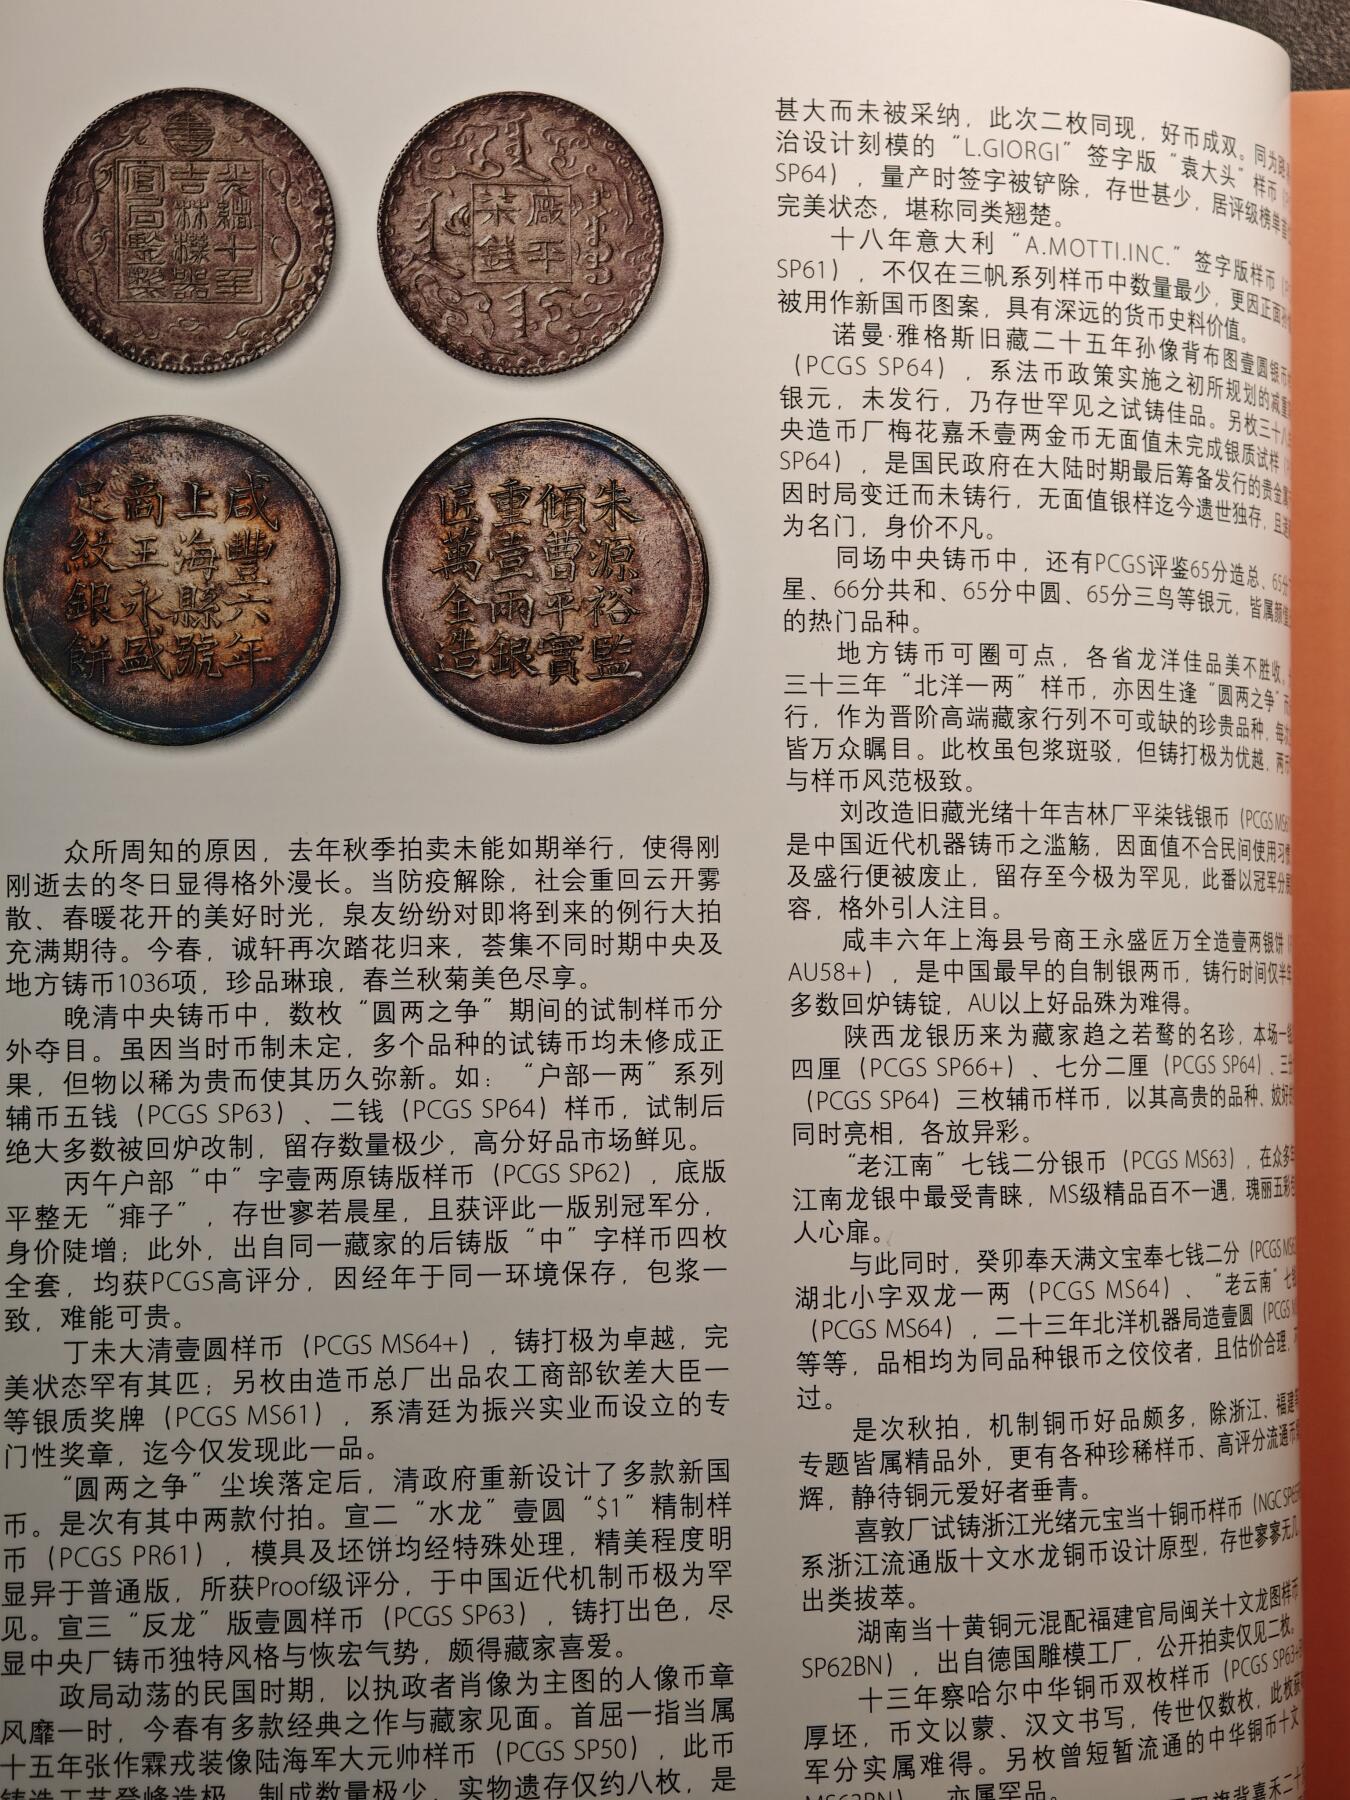 光緒十年
吉林機器
官局監製
廠平
柒錢
咸豐六年
上海縣號
商王永盛
足紋銀餅
朱源裕監
傾曹平實
重壹兩銀
匠萬全造
众所周知的原因，去年秋季拍卖未能如期举行，使得刚
刚逝去的冬日显得格外漫长。当防疫解除，社会重回云开雾
散、春暖花开的美好时光，泉友纷纷对即将到来的例行大拍
充满期待。今春，诚轩再次踏花归来，荟集不同时期中央及
地方铸币1036项，珍品琳琅，春兰秋菊美色尽享。
晚清中央铸币中，数枚“圆两之争”期间的试制样币分
外夺目。虽因当时币制未定，多个品种的试铸币均未修成正
果，但物以稀为贵而使其历久弥新。如：“户部一两”系列
辅币五钱（PCGS SP63）、二钱（PCGS SP64）样币，试制后
绝大多数被回炉改制，留存数量极少，高分好品市场鲜见。
丙午户部“中”字壹两原铸版样币（PCGS SP62），底版
平整无“痱子”，存世寥若晨星，且获评此一版别冠军分，
身价陡增；此外，出自同一藏家的后铸版“中”字样币四枚
全套，均获PCGS高评分，因经年于同一环境保存，包浆一
致，难能可贵。
丁未大清壹圆样币（PCGS MS64+），铸打极为卓越，完
美状态罕有其匹；另枚由造币总厂出品农工商部钦差大臣一
等银质奖牌（PCGS MS61），系清廷为振兴实业而设立的专
门性奖章，迄今仅发现此一品。
“圆两之争”尘埃落定后，清政府重新设计了多款新国
币。是次有其中两款付拍。宣二“水龙”壹圆“$1”精制样
币（PCGS PR61），模具及坯饼均经特殊处理，精美程度明
显异于普通版，所获Proof级评分，于中国近代机制币极为罕
见。宣三“反龙”版壹圆样币（PCGS SP63），铸打出色，尽
显中央厂铸币独特风格与恢宏气势，颇得藏家喜爱。
政局动荡的民国时期，以执政者肖像为主图的人像币章
风靡一时，今春有多款经典之作与藏家见面。首屈一指当属
十五年张作霖戎装像陆海军大元帅样币（PCGS SP50），此币
铸造工艺登峰造极，制成数量极少，实物遗存仅约八枚，是
甚大而未被采纳，此次二枚同现，好币成双。同为
治设计刻模的“L.GIORGI”签字版“袁大头”样币
SP64），量产时签字被铲除，存世甚少，居评级榜单首
完美状态，堪称同类翘楚。
十八年意大利“A.MOTTI.INC.”签字版样币
SP61），不仅在三帆系列样币中数量最少，更因正面孙
被用作新国币图案，具有深远的货币史料价值。
诺曼·雅格斯旧藏二十五年孙像背布图壹圆银币
（PCGS SP64），系法币政策实施之初所规划的减重
银元，未发行，乃存世罕见之试铸佳品。另枚三十八年
央造币厂梅花嘉禾壹两金币无面值未完成银质试样
SP64），是国民政府在大陆时期最后筹备发行的贵金属
因时局变迁而未铸行，无面值银样迄今遗世独存，且
为名门，身价不凡。
同场中央铸币中，还有PCGS评鉴65分造总、65分
星、66分共和、65分中圆、65分三鸟等银元，皆属颜值
的热门品种。
地方铸币可圈可点，各省龙洋佳品美不胜收。
三十三年“北洋一两”样币，亦因生逢“圆两之争”而
行，作为晋阶高端藏家行列不可或缺的珍贵品种，每次
皆万众瞩目。此枚虽包浆斑驳，但铸打极为优越，两
与样币风范极致。
刘改造旧藏光绪十年吉林厂平柒钱银币（PCGS MS6
是中国近代机器铸币之滥觞，因面值不合民间使用习惯
及盛行便被废止，留存至今极为罕见，此番以冠军分
容，格外引人注目。
咸丰六年上海县号商王永盛匠万全造壹两银饼
AU58+），是中国最早的自制银两币，铸行时间仅半年
多数回炉铸锭，AU以上好品殊为难得。
陕西龙银历来为藏家趋之若鹜的名珍，本场一钱
四厘（PCGS SP66+）、七分二厘（PCGS SP64）、三分
（PCGS SP64）三枚辅币样币，以其高贵的品种、姣好
同时亮相，各放异彩。
“老江南”七钱二分银币（PCGS MS63），在众多
江南龙银中最受青睐，MS级精品百不一遇，瑰丽五彩
人心扉。
与此同时，癸卯奉天满文宝奉七钱二分（PCGS MS6
湖北小字双龙一两（PCGS MS64）、“老云南”七钱
（PCGS MS64），二十三年北洋机器局造壹圆（PCGS
等等，品相均为同品种银币之佼佼者，且估价合理，
过。
是次秋拍，机制铜币好品颇多，除浙江、福建
专题皆属精品外，更有各种珍稀样币、高评分流通币
辉，静待铜元爱好者垂青。
喜敦厂试铸浙江光绪元宝当十铜币样币（NGC SP65
系浙江流通版十文水龙铜币设计原型，存世寥寥无几，
出类拔萃。
湖南当十黄铜元混配福建官局闽关十文龙图样币
SP62BN），出自德国雕模工厂，公开拍卖仅见二枚。
十三年察哈尔中华铜币双枚样币（PCGS SP63+
厚坯，币文以蒙、汉文书写，传世仅数枚，此枚获
军分实属难得。另枚曾短暂流通的中华铜币十文
MS62BN），亦属罕品。
旗背嘉禾二十